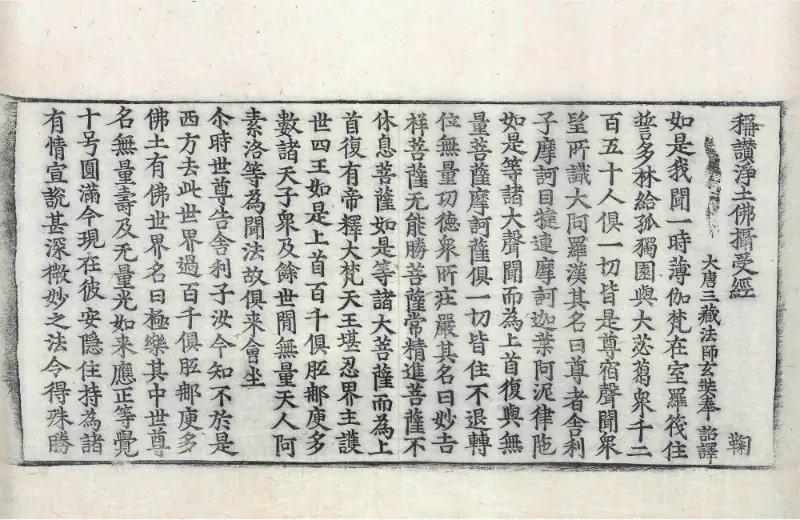 稱讃淨土佛攝受經
大唐三藏法師玄奘奉 詔譯 鞠
如是我聞一時薄伽梵在室羅筏住
誓多林給孤獨園與大苾蒭衆千二
百五十人俱一切皆是尊宿聲聞衆
望所識大阿羅漢其名曰尊者舎利
子摩訶目揵連摩訶迦葉阿泥律陁
如是等諸大聲聞而為上首復與無
量菩薩摩訶薩俱一切皆住不退轉
位無量功德衆所莊嚴其名曰妙吉
祥菩薩无能勝菩薩常精進菩薩不
休息菩薩如是等諸大菩薩而為上
首復有帝釋大梵天王堪忍界主護
世四王如是上首百千俱胝那庾多
數諸天子衆及餘世閒無量天人阿
素洛等為聞法故俱来會坐
尒時世尊告舎利子汝今知不於是
西方去此世界過百千俱胝那庾多
佛土有佛世界名曰極樂其中世尊
名無量壽及无量光如来應正等覺
十号圓滿今現在彼安隱住持為諸
有情宣說甚深微妙之法令得殊勝